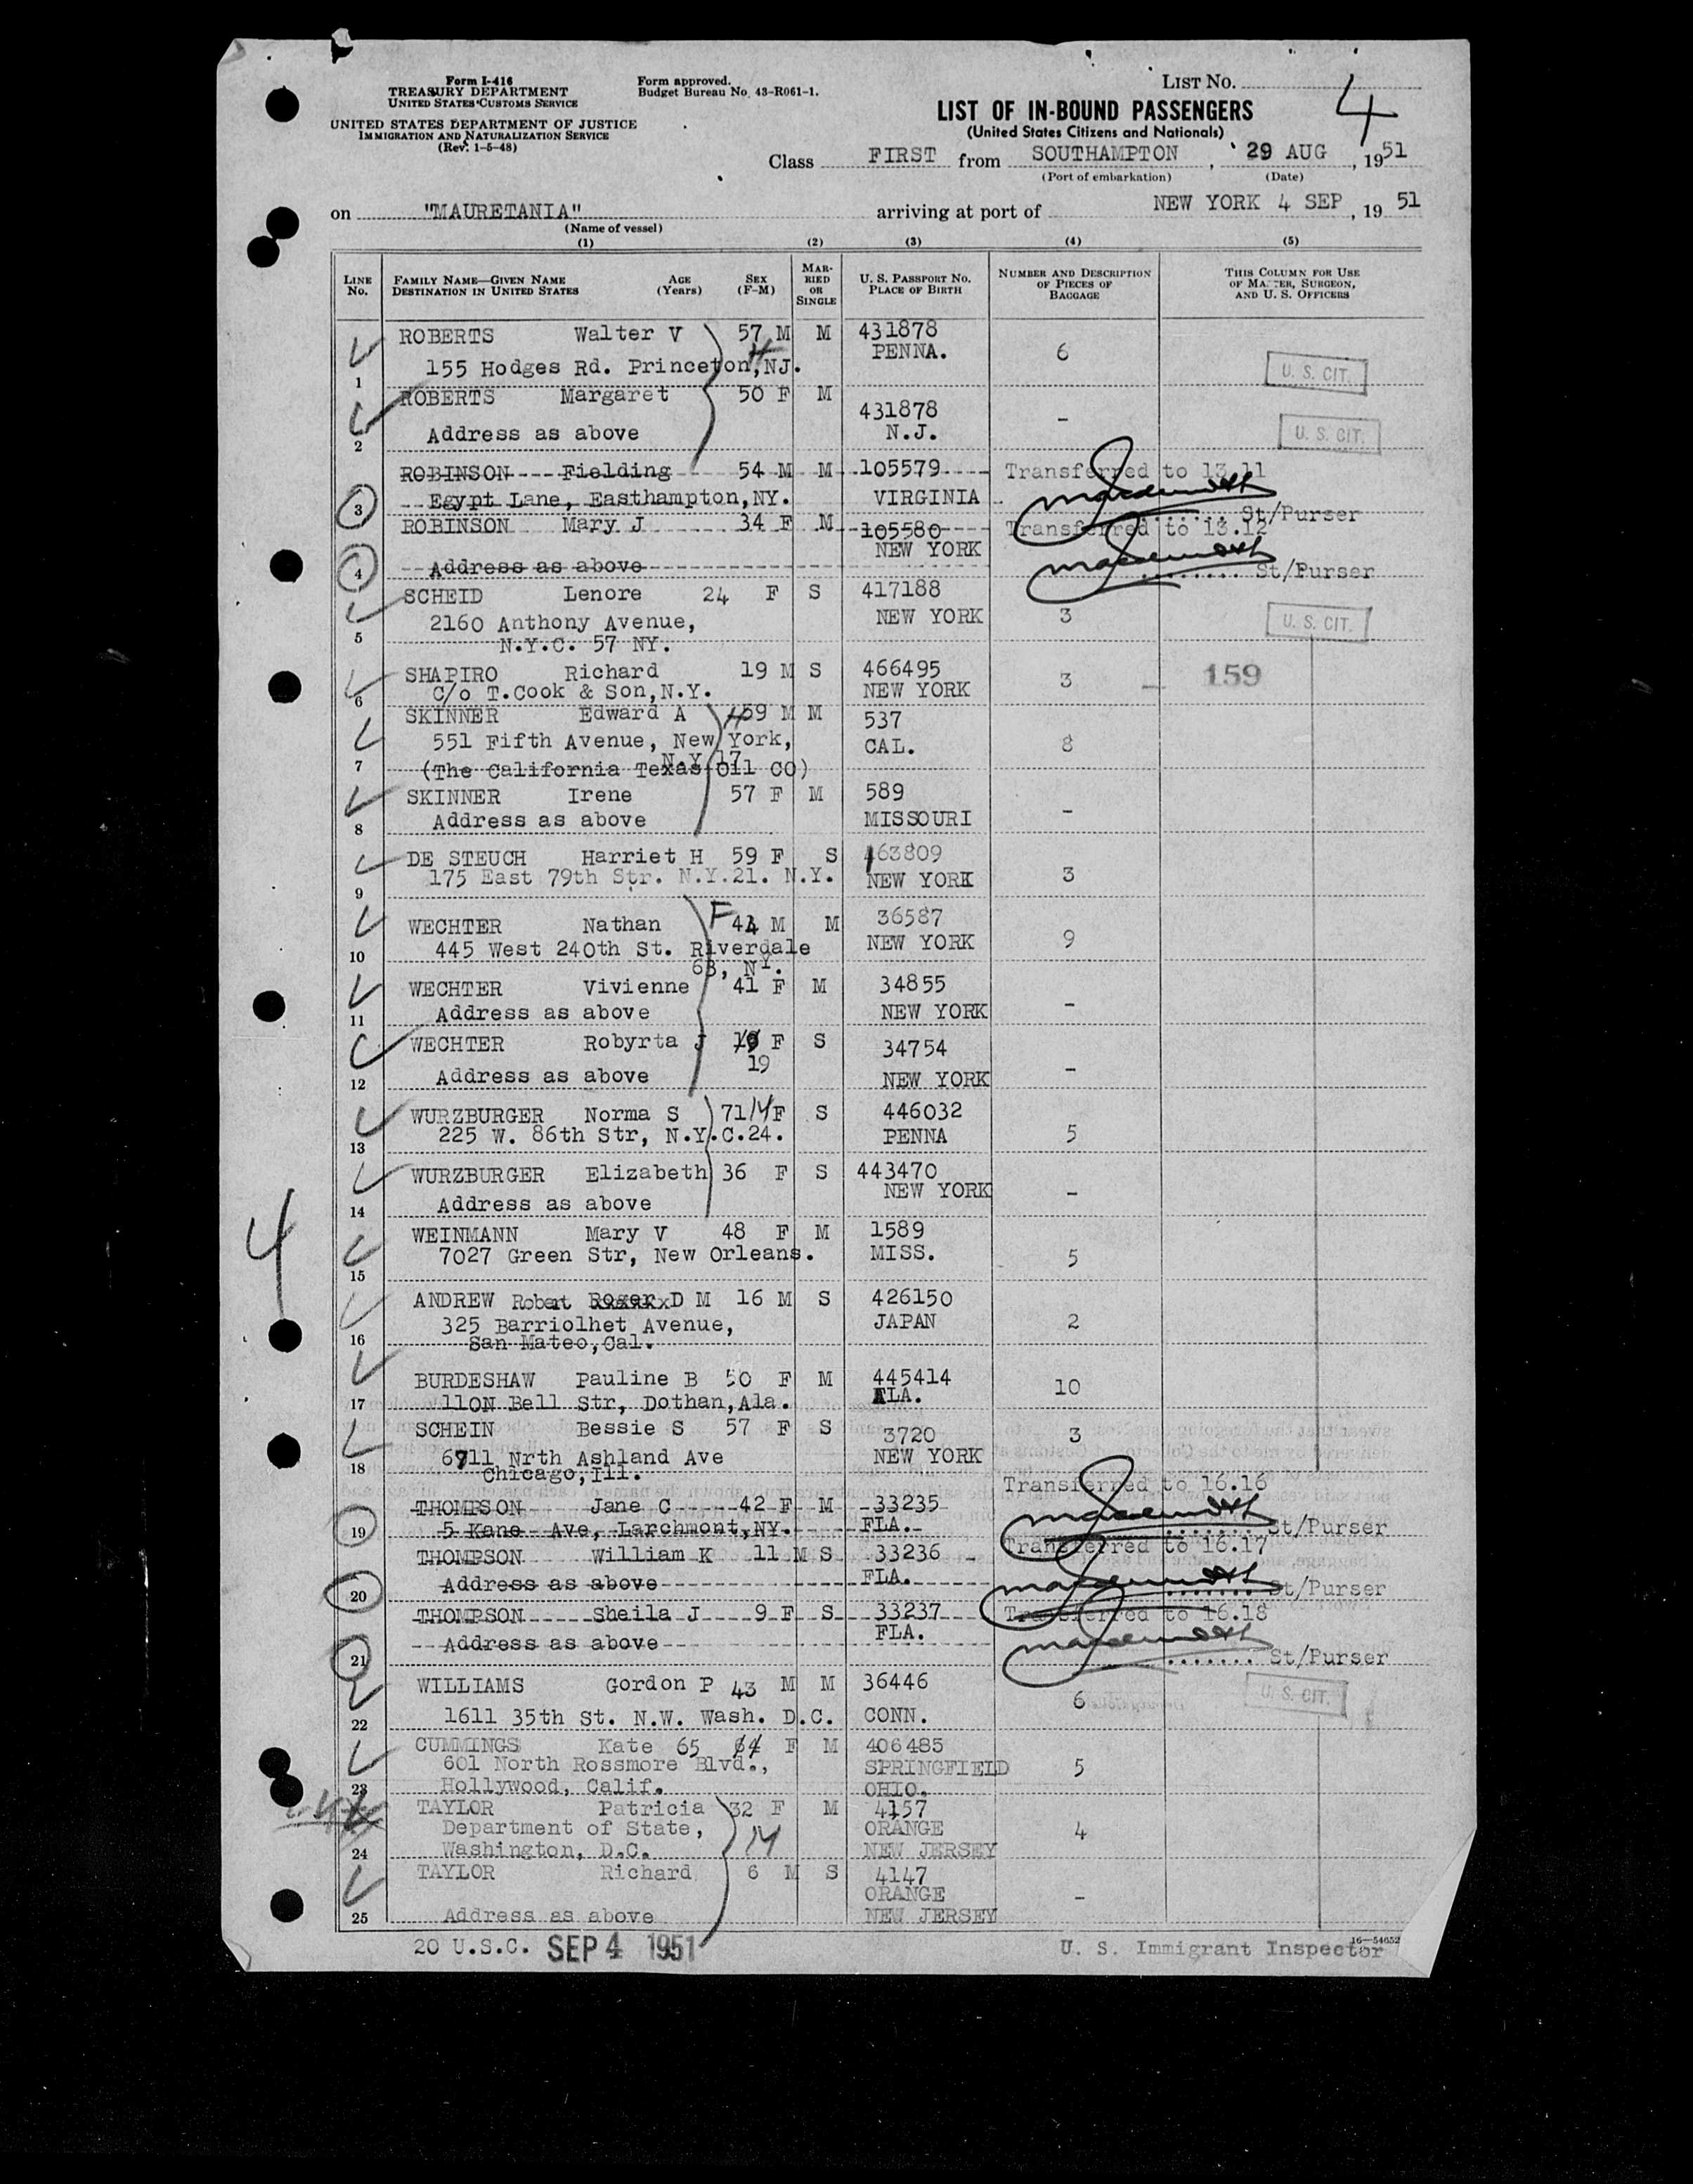 Form I-416
TREASURY DEPARTMENT
UNITED STATES CUSTOMS SERVICE
UNITED STATES DEPARTMENT OF JUSTICE
IMMIGRATION AND NATURALIZATION SERVICE
(Rev. 1-5-48)
Form approved.
Budget Bureau No. 43-R061-1.
LIST NO. 4
LIST OF IN-BOUND PASSENGERS
(United States Citizens and Nationals)
Class FIRST from SOUTHAMPTON, 29 AUG, 1951
(Port of embarkation) (Date)
on "MAURETANIA" arriving at port of NEW YORK 4 SEP, 19 51
(Name of vessel)
(1) (2) (3) (4) (5)
LINE No. FAMILY NAME—GIVEN NAME DESTINATION IN UNITED STATES AGE (Years) SEX (F-M) MARRIED OR SINGLE U. S. PASSPORT NO. PLACE OF BIRTH NUMBER AND DESCRIPTION OF PIECES OF BAGGAGE THIS COLUMN FOR USE OF MASTER, SURGEON, AND U. S. OFFICERS
ROBERTS Walter V 57 M M 431878
PENNA. 6
155 Hodges Rd. Princeton, NJ. U. S. CIT.
1
ROBERTS Margaret 50 F M
431878 -
Address as above N.J. U. S. CIT.
2
ROBINSON Fielding 54 M M 105579 Transferred to 13.11
Egypt Lane, Easthampton, NY. VIRGINIA
3 St/Purser
ROBINSON Mary J 34 F M 105580 Transferred to 13.12
NEW YORK
4 Address as above St/Purser
SCHEID Lenore 24 F S 417188
2160 Anthony Avenue, NEW YORK 3 U. S. CIT.
5 N.Y.C. 57 NY.
SHAPIRO Richard 19 M S 466495 3 159
6 C/o T.Cook & Son, N.Y. NEW YORK
SKINNER Edward A H 59 M M 537
551 Fifth Avenue, New York, CAL. 8
N.Y. 17
7 (The California Texas Oil CO)
SKINNER Irene 57 F M 589
8 Address as above MISSOURI -
DE STEUCH Harriet H 59 F S 163809
175 East 79th Str. N.Y.21. N.Y. NEW YORK 3
9
WECHTER Nathan F 44 M M 36587
445 West 240th St. Riverdale NEW YORK 9
10 63, NY.
WECHTER Vivienne 41 F M 34855
11 Address as above NEW YORK -
WECHTER Robyrta J F S 34754
19
12 Address as above NEW YORK -
WURZBURGER Norma S 71 M F S 446032
225 W. 86th Str, N.Y.C.24. PENNA 5
13
WURZBURGER Elizabeth 36 F S 443470
NEW YORK -
14 Address as above
4
WEINMANN Mary V 48 F M 1589
7027 Green Str, New Orleans. MISS. 5
15
ANDREW Robert Roger D M 16 M S 426150
325 Barriolhet Avenue, JAPAN 2
16 San Mateo, Cal.
BURDESHAW Pauline B 50 F M 445414 10
17 110N Bell Str, Dothan, Ala. ALA.
SCHEIN Bessie S 57 F S 3720 3
6711 Nrth Ashland Ave NEW YORK
18 Chicago, Ill.
Transferred to 16.16
THOMPSON Jane C 42 F M 33235
19 5 Kane Ave, Larchmont, NY. FLA. St/Purser
THOMPSON William K 11 M S 33236 Transferred to 16.17
20 Address as above FLA. St/Purser
THOMPSON Sheila J 9 F S 33237 Transferred to 16.18
Address as above FLA.
21 St/Purser
WILLIAMS Gordon P 43 M M 36446 6 U. S. CIT.
22 1611 35th St. N.W. Wash. D.C. CONN.
CUMMINGS Kate 65 64 F M 406485
601 North Rossmore Blvd., SPRINGFIELD 5
23 Hollywood, Calif. OHIO.
TAYLOR Patricia 32 F M 4157
Department of State, M ORANGE 4
24 Washington, D.C. NEW JERSEY
TAYLOR Richard 6 M S 4147
ORANGE -
25 Address as above NEW JERSEY
20 U.S.C. SEP 4 1951 U. S. Immigrant Inspector
16—54652